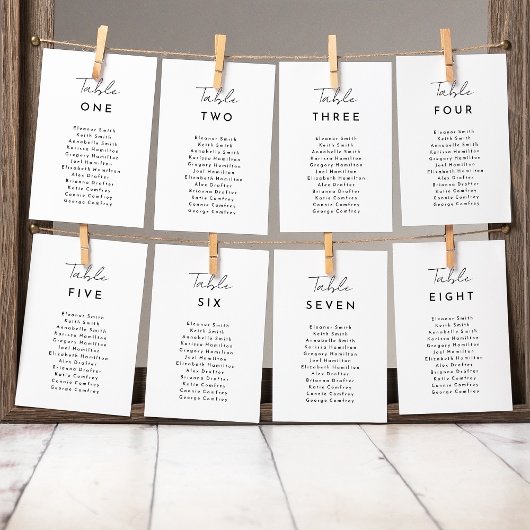 Table
ONE
Eleanor Smith
Keith Smith
Annabelle Smith
Karissa Hamilton
Gregory Hamilton
Joel Hamilton
Elizabeth Hamilton
Alex Drafter
Brianna Drafter
Katie Comfrey
Connie Comfrey
George Comfrey
Table
TWO
Eleanor Smith
Keith Smith
Annabelle Smith
Karissa Hamilton
Gregory Hamilton
Joel Hamilton
Elizabeth Hamilton
Alex Drafter
Brianna Drafter
Katie Comfrey
Connie Comfrey
George Comfrey
Table
THREE
Eleanor Smith
Keith Smith
Annabelle Smith
Karissa Hamilton
Gregory Hamilton
Joel Hamilton
Elizabeth Hamilton
Alex Drafter
Brianna Drafter
Katie Comfrey
Connie Comfrey
George Comfrey
Table
FOUR
Eleanor Smith
Keith Smith
Annabelle Smith
Karissa Hamilton
Gregory Hamilton
Joel Hamilton
Elizabeth Hamilton
Alex Drafter
Brianna Drafter
Katie Comfrey
Connie Comfrey
George Comfrey
Table
FIVE
Eleanor Smith
Keith Smith
Annabelle Smith
Karissa Hamilton
Gregory Hamilton
Joel Hamilton
Elizabeth Hamilton
Alex Drafter
Brianna Drafter
Katie Comfrey
Connie Comfrey
George Comfrey
Table
SIX
Eleanor Smith
Keith Smith
Annabelle Smith
Karissa Hamilton
Gregory Hamilton
Joel Hamilton
Elizabeth Hamilton
Alex Drafter
Brianna Drafter
Katie Comfrey
Connie Comfrey
George Comfrey
Table
SEVEN
Eleanor Smith
Keith Smith
Annabelle Smith
Karissa Hamilton
Gregory Hamilton
Joel Hamilton
Elizabeth Hamilton
Alex Drafter
Brianna Drafter
Katie Comfrey
Connie Comfrey
George Comfrey
Table
EIGHT
Eleanor Smith
Keith Smith
Annabelle Smith
Karissa Hamilton
Gregory Hamilton
Joel Hamilton
Elizabeth Hamilton
Alex Drafter
Brianna Drafter
Katie Comfrey
Connie Comfrey
George Comfrey